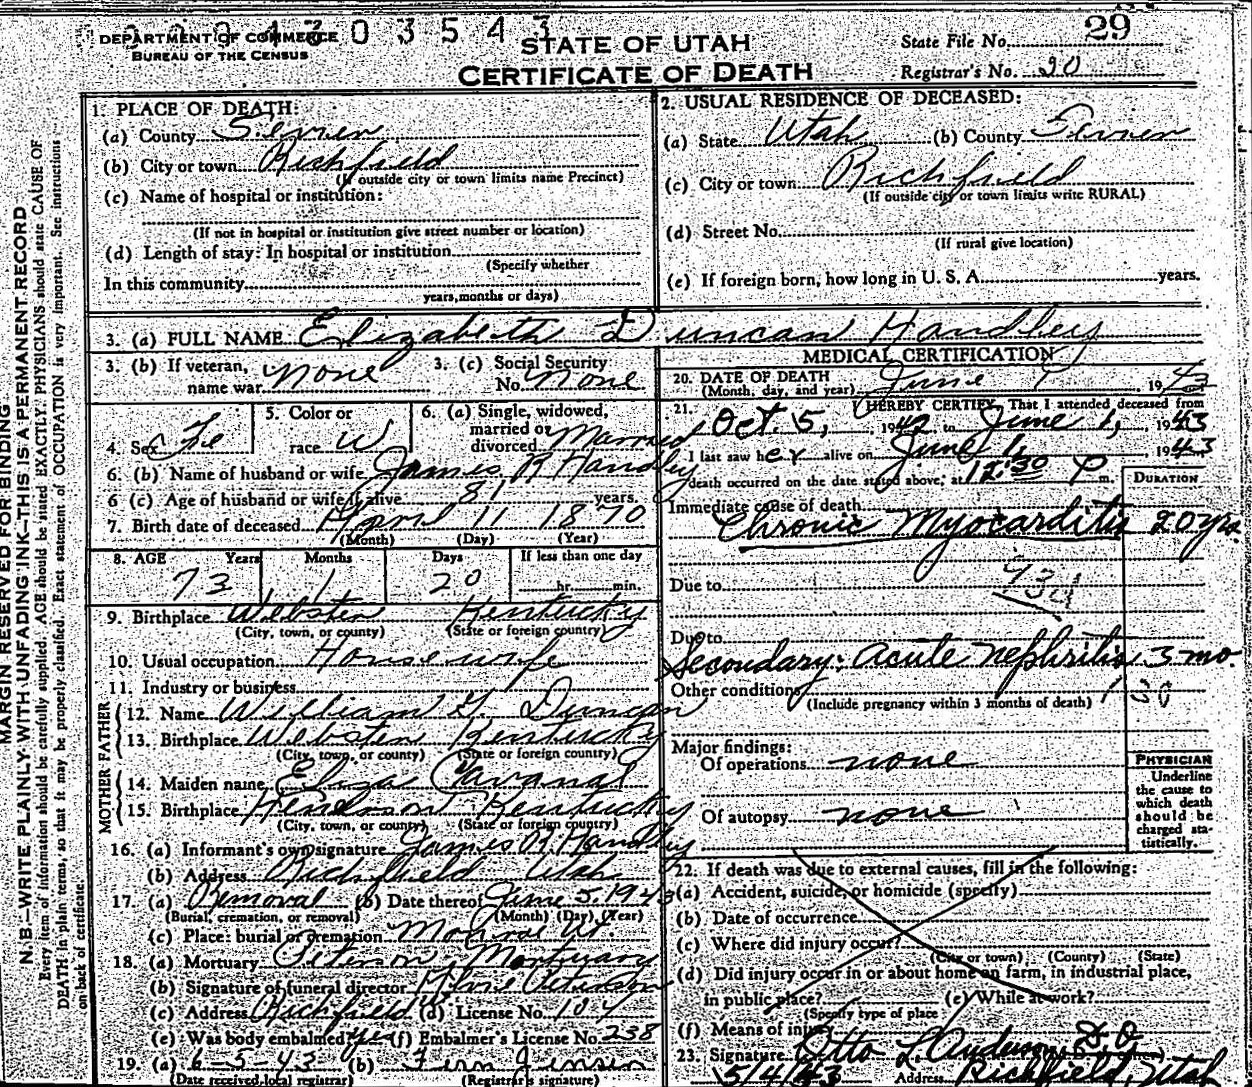 0 3 5 4 3
DEPARTMENT OF COMMERCE
BUREAU OF THE CENSUS
STATE OF UTAH
CERTIFICATE OF DEATH
State File No. 29
Registrar's No. 20
1. PLACE OF DEATH:
(a) County Sevier
(b) City or town Richfield
(If outside city or town limits name Precinct)
(c) Name of hospital or institution:
(If not in hospital or institution give street number or location)
(d) Length of stay: In hospital or institution
(Specify whether
In this community
years, months or days)
2. USUAL RESIDENCE OF DECEASED:
(a) State Utah (b) County Sevier
(c) City or town Richfield
(If outside city or town limits write RURAL)
(d) Street No.
(If rural give location)
(e) If foreign born, how long in U. S. A. years.
3. (a) FULL NAME Elizabeth Duncan Handley
3. (b) If veteran, name war none 3. (c) Social Security No. none
4. Sex Fe 5. Color or race W 6. (a) Single, widowed, married or divorced Married
6. (b) Name of husband or wife James R Handley
6 (c) Age of husband or wife if alive 81 years.
7. Birth date of deceased April 11 1870
(Month) (Day) (Year)
8. AGE Years Months Days If less than one day
73 1 20 hr. min.
9. Birthplace Webster Kentucky
(City, town, or county) (State or foreign country)
10. Usual occupation Housewife
11. Industry or business
FATHER
12. Name William G. Duncan
13. Birthplace Webster Kentucky
(City, town, or county) (State or foreign country)
MOTHER
14. Maiden name Eliza Cavanah
15. Birthplace Henderson Kentucky
(City, town, or county) (State or foreign country)
16. (a) Informant's own signature James R. Handley
(b) Address Richfield Utah
17. (a) Removal (b) Date thereof June 5, 1943
(Burial, cremation, or removal) (Month) (Day) (Year)
(c) Place: burial or cremation Monroe Ut
18. (a) Mortuary Peterson Mortuary
(b) Signature of funeral director Peterson
(c) Address Richfield (d) License No. 107
(e) Was body embalmed? yes (f) Embalmer's License No. 238
19. (a) 6-5-43 (b) Fern Jensen
(Date received local registrar) (Registrar's signature)
MEDICAL CERTIFICATION
20. DATE OF DEATH June 1, 1943
(Month, day, and year)
21. I HEREBY CERTIFY, That I attended deceased from
Oct. 5, 1942 to June 1, 1943
I last saw her alive on June 1, 1943
death occurred on the date stated above, at 12:30 P m.
DURATION
Immediate cause of death
Chronic Myocarditis 20 yrs.
Due to
93d
Due to
Secondary: Acute nephritis 3 mo.
Other conditions 130
(Include pregnancy within 3 months of death)
Major findings:
Of operations none
Of autopsy none
PHYSICIAN
Underline
the cause to
which death
should be
charged sta-
tistically.
22. If death was due to external causes, fill in the following:
(a) Accident, suicide, or homicide (specify)
(b) Date of occurrence
(c) Where did injury occur?
(City or town) (County) (State)
(d) Did injury occur in or about home on farm, in industrial place,
in public place? (e) While at work?
(Specify type of place)
(f) Means of injury
23. Signature Otto L. Anderson D.O.
5/4/43 Address Richfield, Utah
MARGIN RESERVED FOR BINDING
N. B.—WRITE PLAINLY, WITH UNFADING INK—THIS IS A PERMANENT RECORD
Every item of information should be carefully supplied. AGE should be stated EXACTLY. PHYSICIANS should state CAUSE OF
DEATH in plain terms, so that it may be properly classified. Exact statement of OCCUPATION is very important. See instructions
on back of certificate.